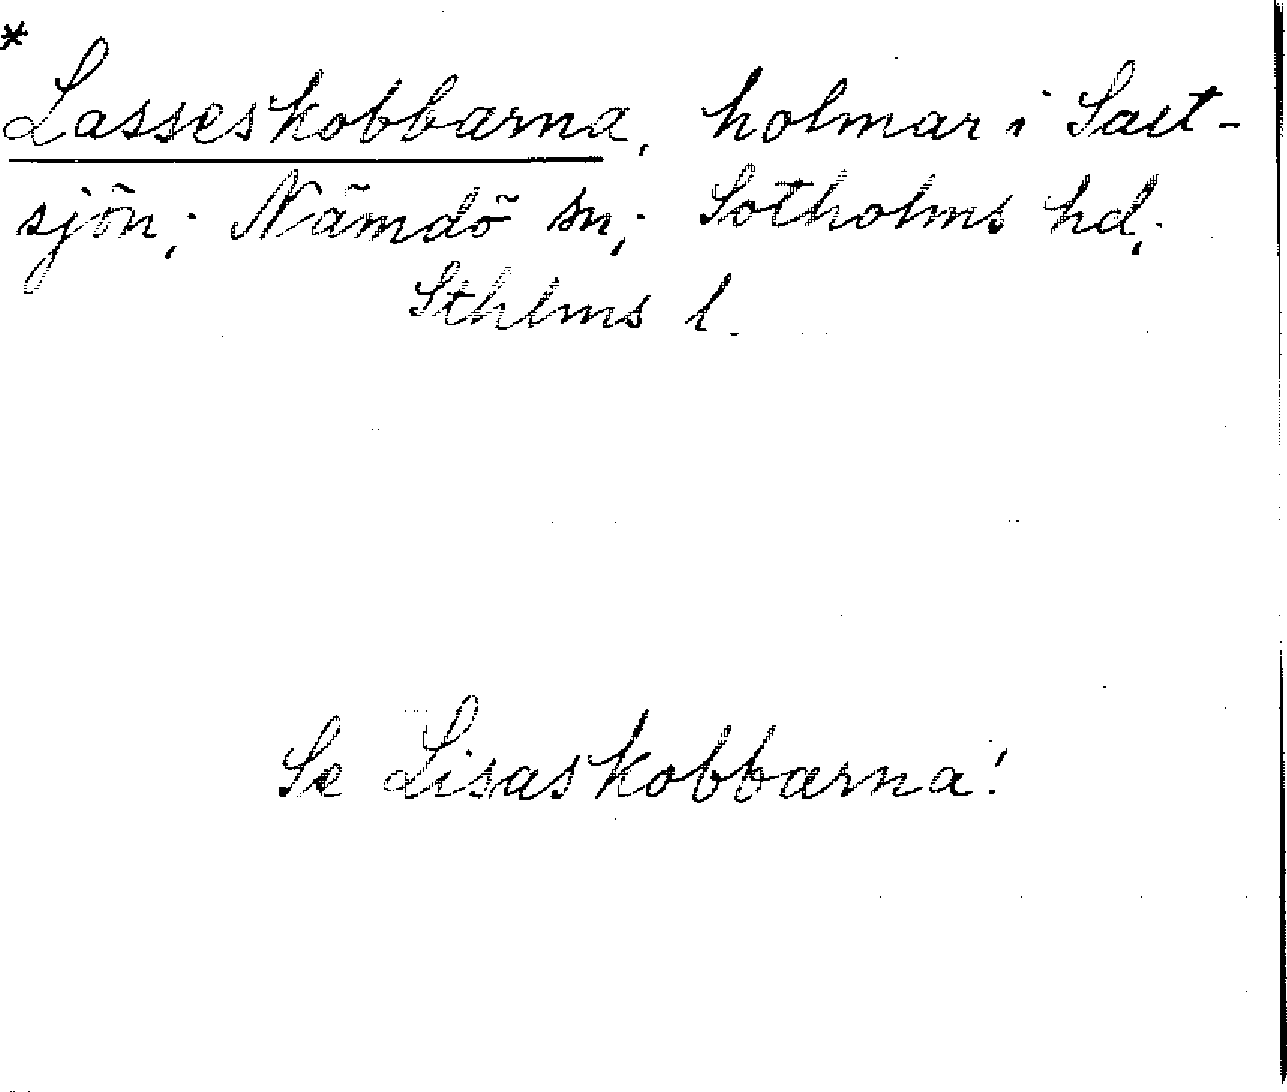 *
Lasseskobbarna, holmar i Salt-
sjön; Nämdö sn; Sotholms hd;
Sthlms l.
Se Lisaskobbarna!